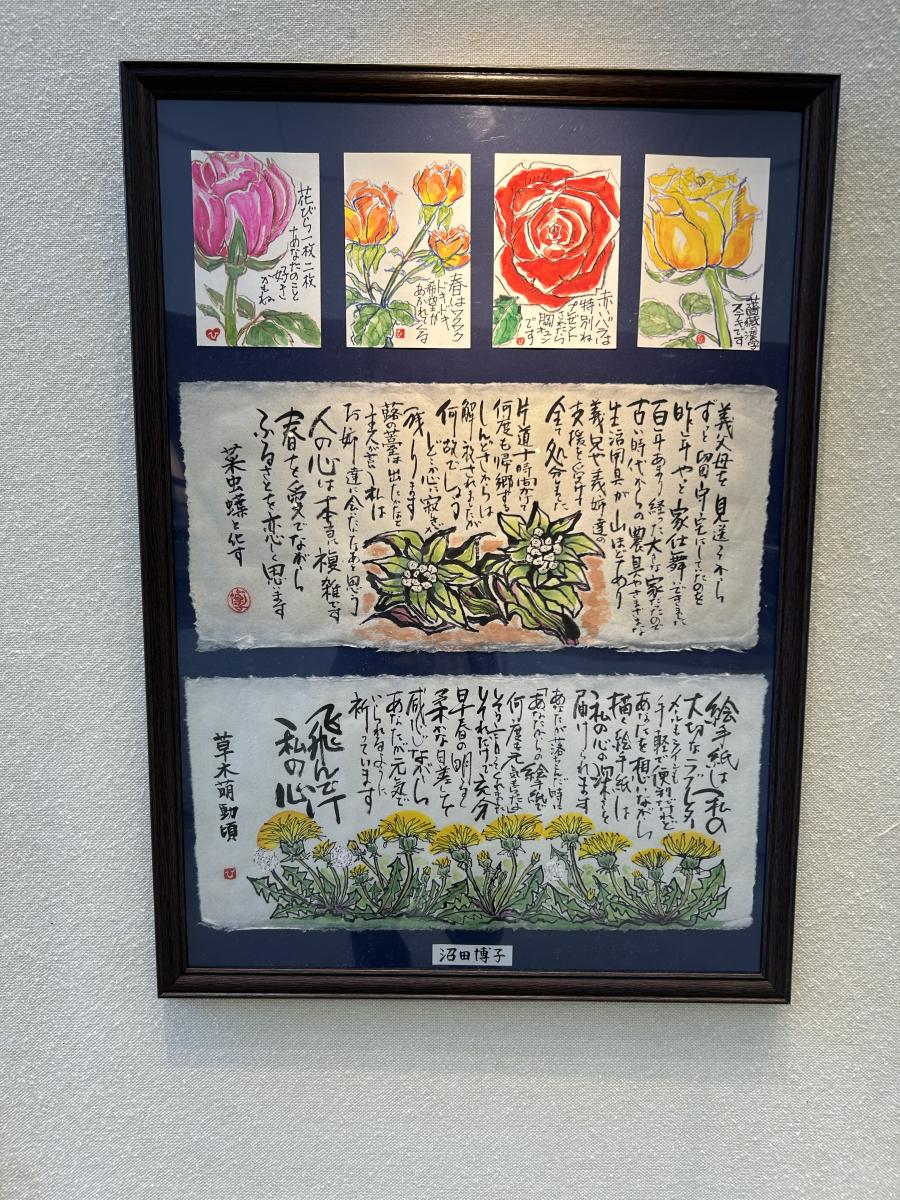 花びら一枚二枚
あなたのこと
好き
かもね
春はワクワク
ドキドキ
希望が
あふれてくる
赤いバラは
特別ね
プレゼント
されたら
胸キュン
です
薔薇の漢字
ステキです
義父母を見送ってから
ずっと留守宅にしていたのを
昨年やっと家仕舞いできました
百年あまり経った大きな家だったので
古い時代からの農具やさまざまな
生活用具が山ほどあり
義兄や義姉達の
支援を
全て処分
片道十時間かけて
何度も帰郷する
しんどさからは
解放されましたが
何故でしょう
どこか心に寂しさが
残ります
蕗の薹は出たかなと
主人が云い私は
お姉達に会いたいなあと思う
人の心は本当に複雑です
春を愛でながら
ふるさとを恋しく思います
菜虫蝶と化す
絵手紙は私の
大切なラブレター
メールもラインもいいけれど
手軽で便利だけど
あなたを想いながら
描く絵手紙は
私の心の深さを
届けられます
あなたが落ちこんだ時
あなたからの絵手紙で
何度も元気になったよ
そう言ってくれました
それだけで充分
早春の明るく
柔かな日差しを
感じながら
あなたが元気で
いられるように
祈っています
飛んでけ
私の心
草木萌動頃
沼田博子